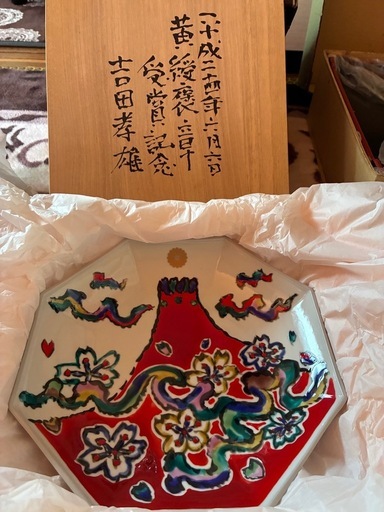 平成二十四年六月六日
黄綬褒章
受賞記念
吉田孝雄